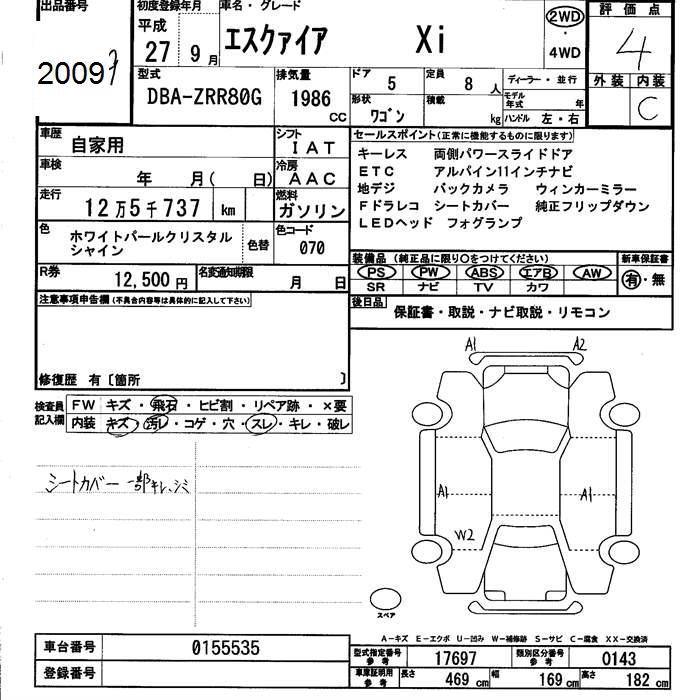 出品番号
20097
初度登録年月
平成 27 9 月
車名・グレード
エスクァイア Xi
2WD・4WD
評価点
4
外装 内装
C
型式
DBA-ZRR80G
排気量
1986 CC
ドア
5
定員
8 人
形状
ワゴン
積載
kg
ディーラー・並行
モデル年式 年
ハンドル 左・右
車歴
自家用
シフト
IAT
車検
年 月( 日)
冷房
AAC
走行
12万5千737 km
燃料
ガソリン
色
ホワイトパールクリスタルシャイン
色替
色コード
070
R券
12,500円
名変通知期限
月 日
セールスポイント(正常に機能するものに限ります)
キーレス 両側パワースライドドア
ETC アルパイン11インチナビ
地デジ バックカメラ ウィンカーミラー
Fドラレコ シートカバー 純正フリップダウン
LEDヘッド フォグランプ
装備品 (純正品に限り○をつけてください)
PS PW ABS エアB AW
SR ナビ TV カワ
新車保証書
有・無
後日品
保証書・取説・ナビ取説・リモコン
注意事項申告欄(不具合内容等は具体的に記入して下さい)
修復歴 有〔箇所 〕
検査員記入欄
FW キズ・飛石・ヒビ割・リペア跡・×要
内装 キズ・汚レ・コゲ・穴・スレ・キレ・破レ
シートカバー 一部キレ、シミ
A1 A2
A1 A1
W2
スペア
A-キズ E-エクボ U-凹み W-補修跡 S-サビ C-腐食 XX-交換済
車台番号
0155535
登録番号
型式指定番号 参考
17697
類別区分番号 参考
0143
車庫証明用 参考
長さ 469 cm
幅 169 cm
高さ 182 cm